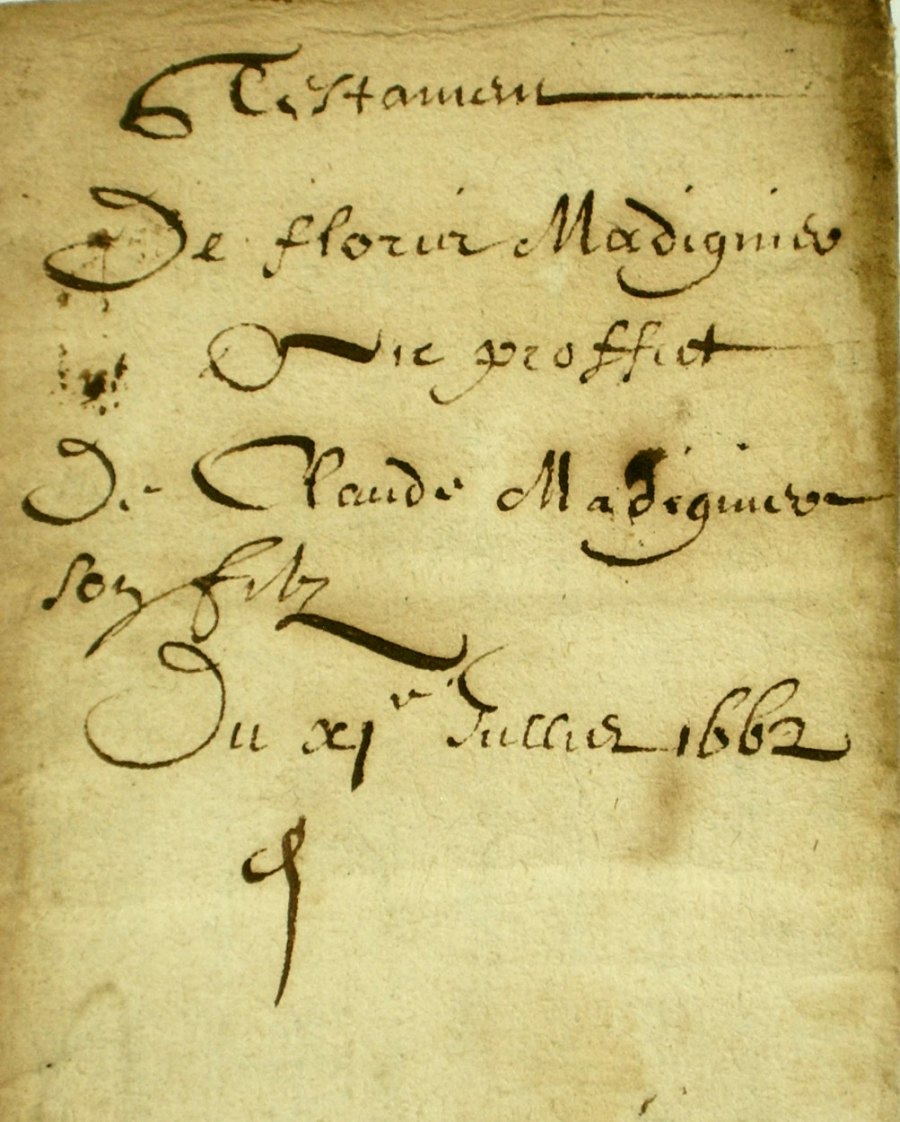 Testament
De florir Madignier
Au proffit
De Claude Madignier
son filz
Du xje Jullier 1662